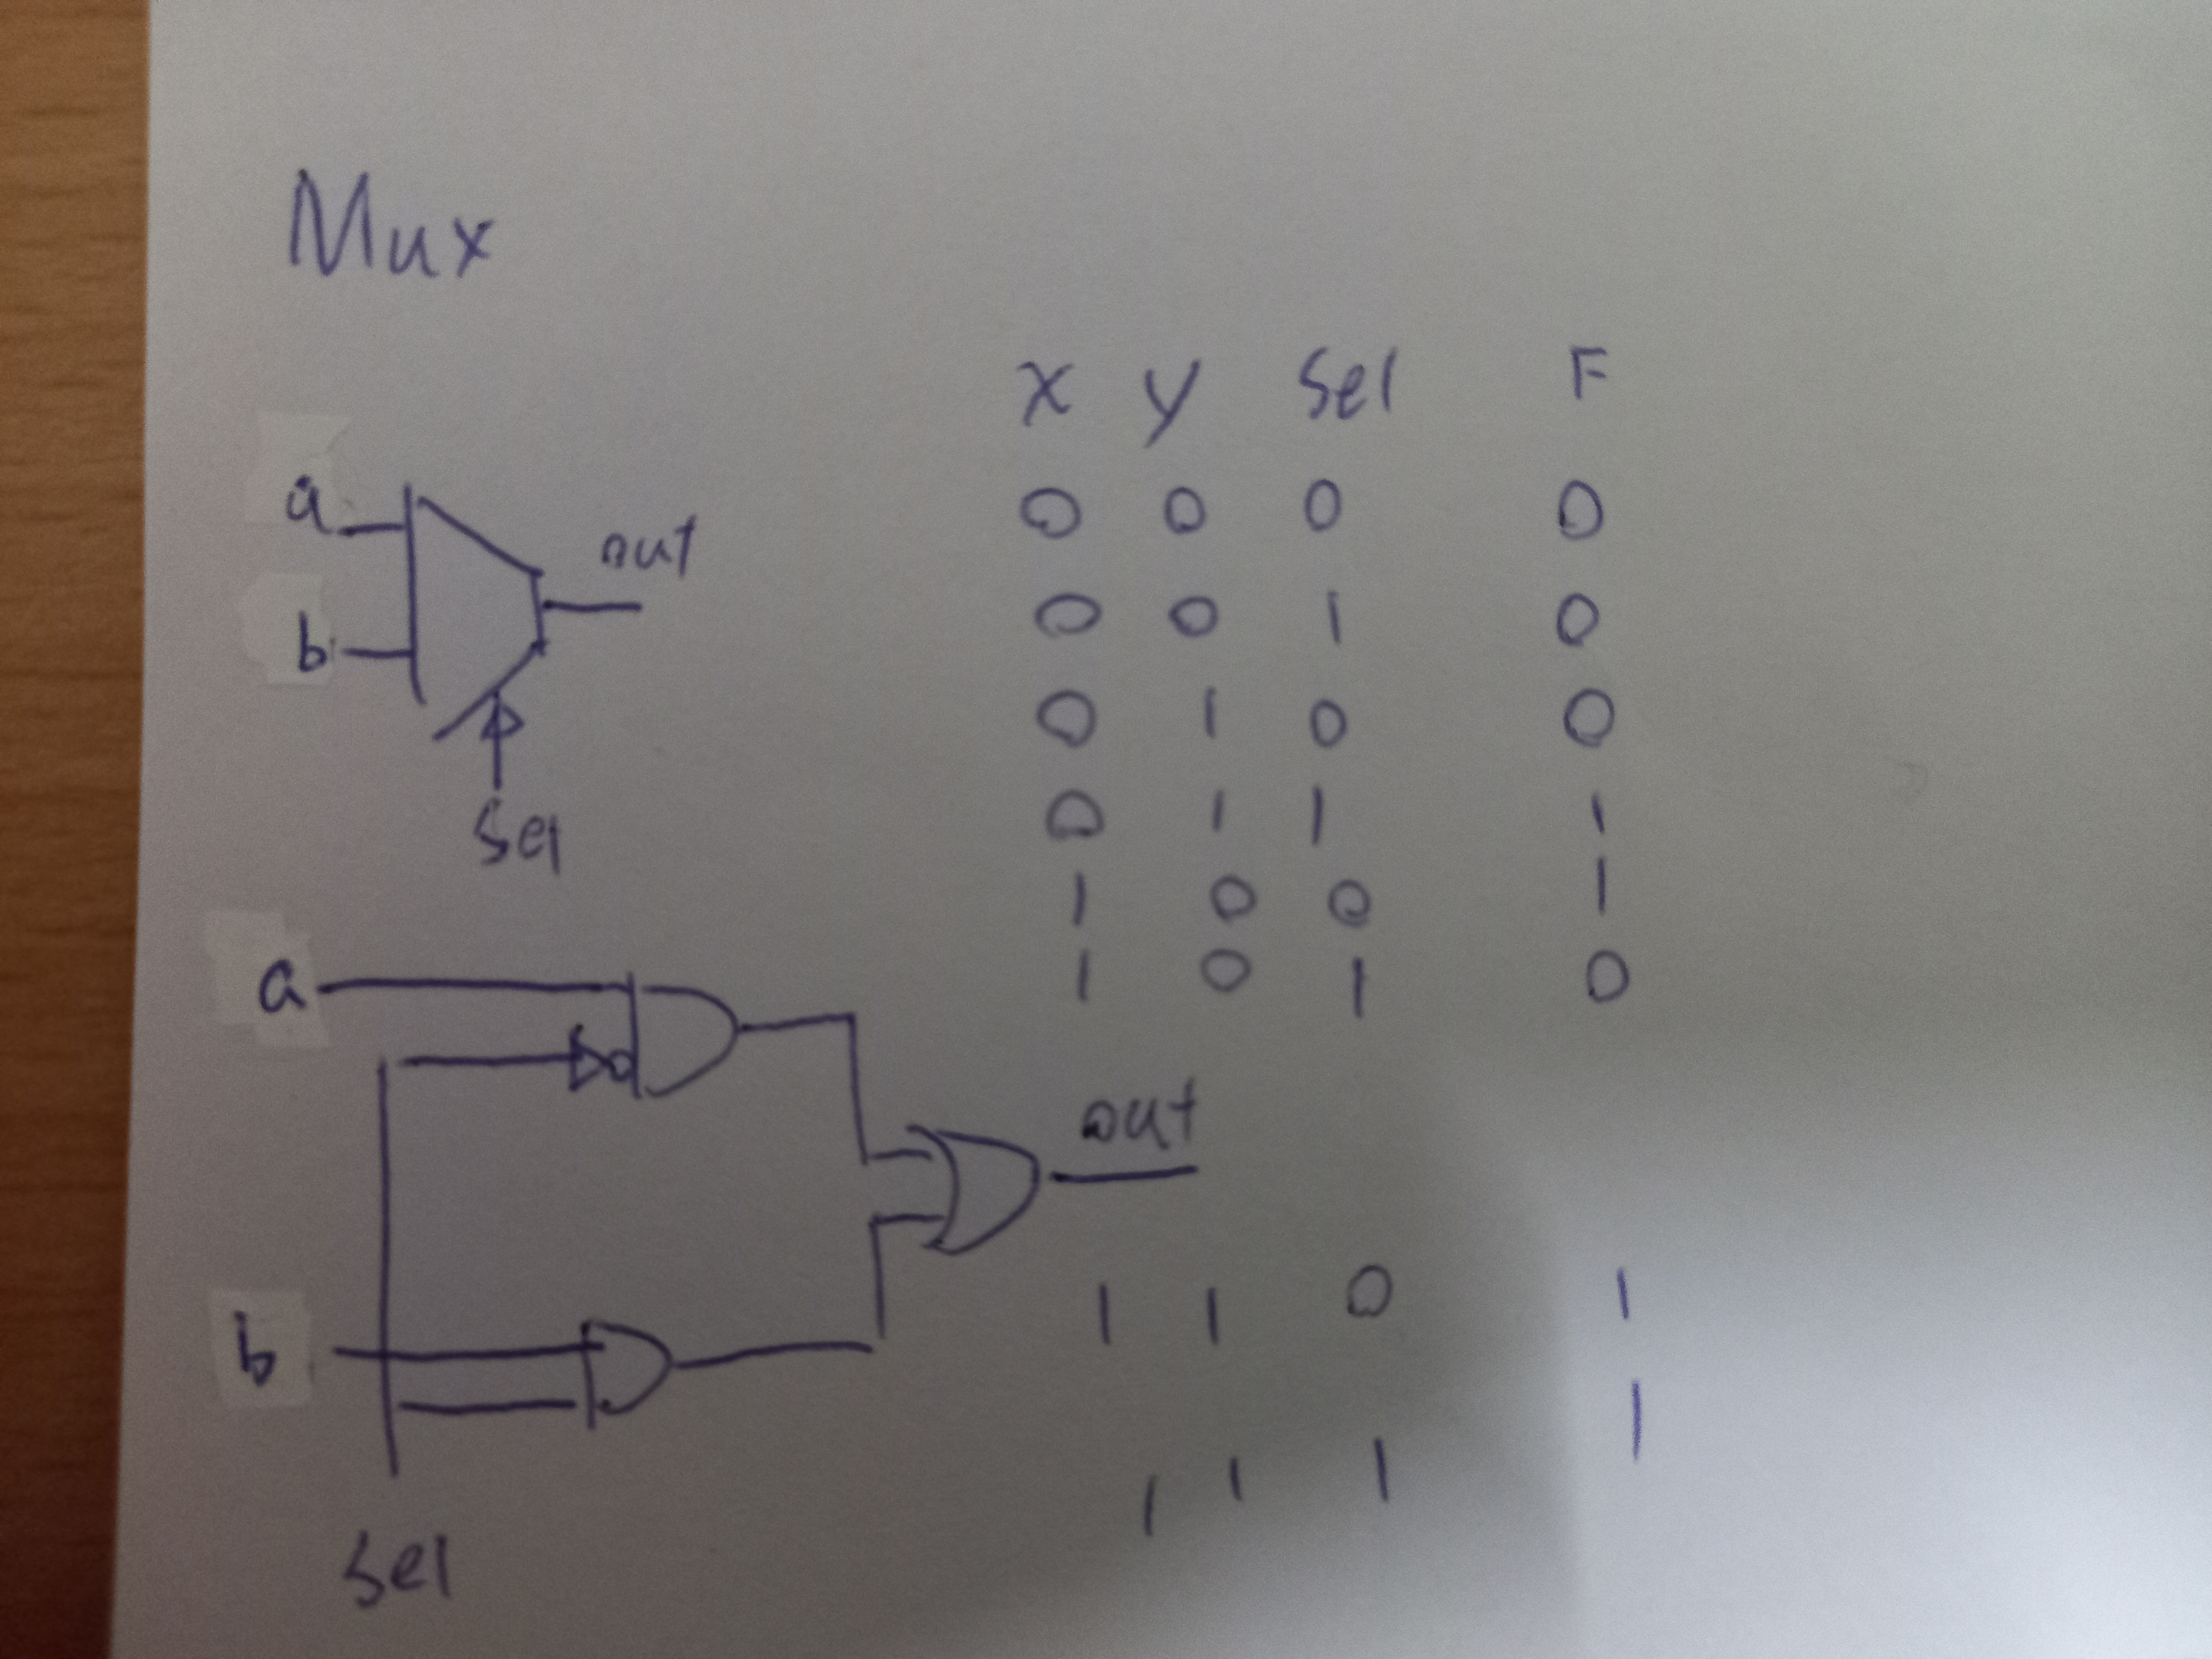 Mux
a
b
out
Sel
a
b
Sel
out
X Y Sel F
0 0 0 0
0 0 1 0
0 1 0 0
0 1 1 1
1 0 0 1
1 0 1 0
1 1 0 1
1 1 1 1